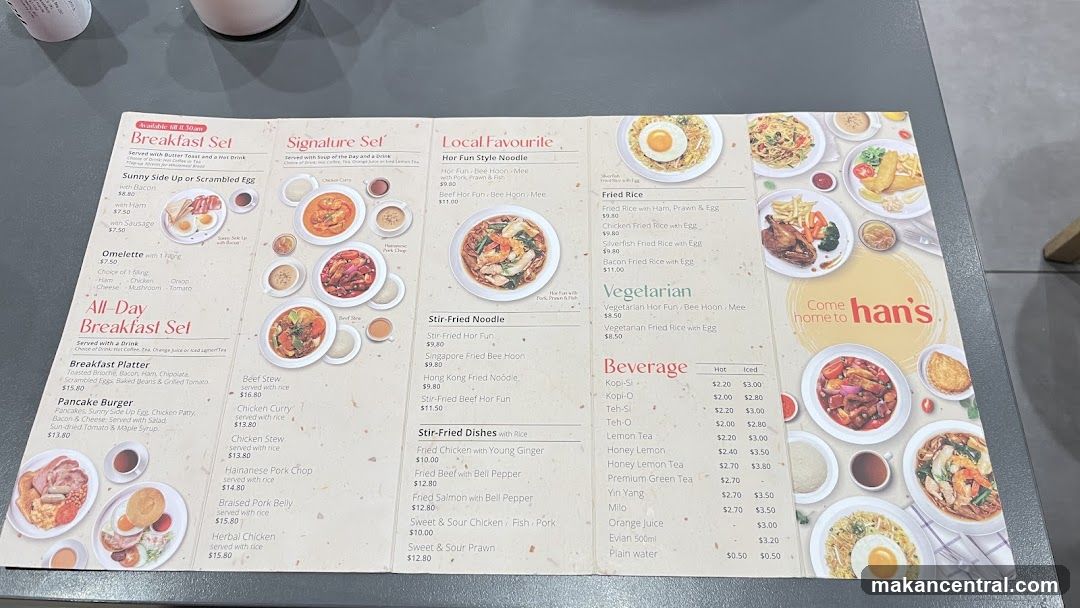 Available till 11.30am
Breakfast Set
Served with Butter Toast and a Hot Drink
Choice of Drink: Hot Coffee or Tea
Sunny Side Up or Scrambled Egg
with Bacon
$8.80
with Ham
$7.50
with Sausage
$7.50
Sunny Side Up
with Bacon
Omelette with 1 filling
$7.50
Choice of 1 filling:
Ham - Chicken - Onion
Cheese - Mushroom - Tomato
All-Day
Breakfast Set
Served with a Drink
Choice of Drink: Hot Coffee, Tea, Orange Juice or Iced Lemon Tea
Breakfast Platter
Toasted Brioche, Bacon, Ham, Chipolata,
Scrambled Eggs, Baked Beans & Grilled Tomato.
$15.80
Pancake Burger
Pancakes, Sunny Side Up Egg, Chicken Patty,
Bacon & Cheese. Served with Salad,
Sun-dried Tomato & Maple Syrup.
$13.80
Signature Set
Served with Soup of the Day and a Drink
Choice of Drink: Hot Coffee, Tea, Orange Juice or Iced Lemon Tea
Chicken Curry
Hainanese
Pork Chop
Beef Stew
Beef Stew
served with rice
$16.80
Chicken Curry
served with rice
$13.80
Chicken Stew
served with rice
$13.80
Hainanese Pork Chop
$14.80
Braised Pork Belly
served with rice
$15.80
Herbal Chicken
served with rice
$15.80
Local Favourite
Hor Fun Style Noodle
Hor Fun - Bee Hoon - Mee
with Pork, Prawn & Fish
$9.80
Beef Hor Fun - Bee Hoon - Mee
$11.00
Hor Fun with
Pork, Prawn & Fish
Stir-Fried Noodle
Stir-Fried Hor Fun
$9.80
Singapore Fried Bee Hoon
$9.80
Hong Kong Fried Noodle
$9.80
Stir-Fried Beef Hor Fun
$11.50
Stir-Fried Dishes with Rice
Fried Chicken with Young Ginger
$10.00
Fried Beef with Bell Pepper
$12.80
Fried Salmon with Bell Pepper
$12.80
Sweet & Sour Chicken / Fish / Pork
$10.00
Sweet & Sour Prawn
$12.80
Silverfish
Fried Rice with Egg
Fried Rice
Fried Rice with Ham, Prawn & Egg
$9.80
Chicken Fried Rice with Egg
$9.80
Silverfish Fried Rice with Egg
$9.80
Bacon Fried Rice with Egg
$11.00
Vegetarian
Vegetarian Hor Fun - Bee Hoon - Mee
$8.50
Vegetarian Fried Rice with Egg
$8.50
Beverage Hot Iced
Kopi-Si $2.20 $3.00
Kopi-O $2.00 $2.80
Teh-Si $2.20 $3.00
Teh-O $2.00 $2.80
Lemon Tea $2.20 $3.00
Honey Lemon $2.40 $3.50
Honey Lemon Tea $2.70 $3.80
Premium Green Tea $2.70 -
Yin Yang $2.70 $3.50
Milo $2.70 $3.50
Orange Juice - $3.00
Evian 500ml - $3.20
Plain water $0.50 $0.50
Come
home to han's
makancentral.com